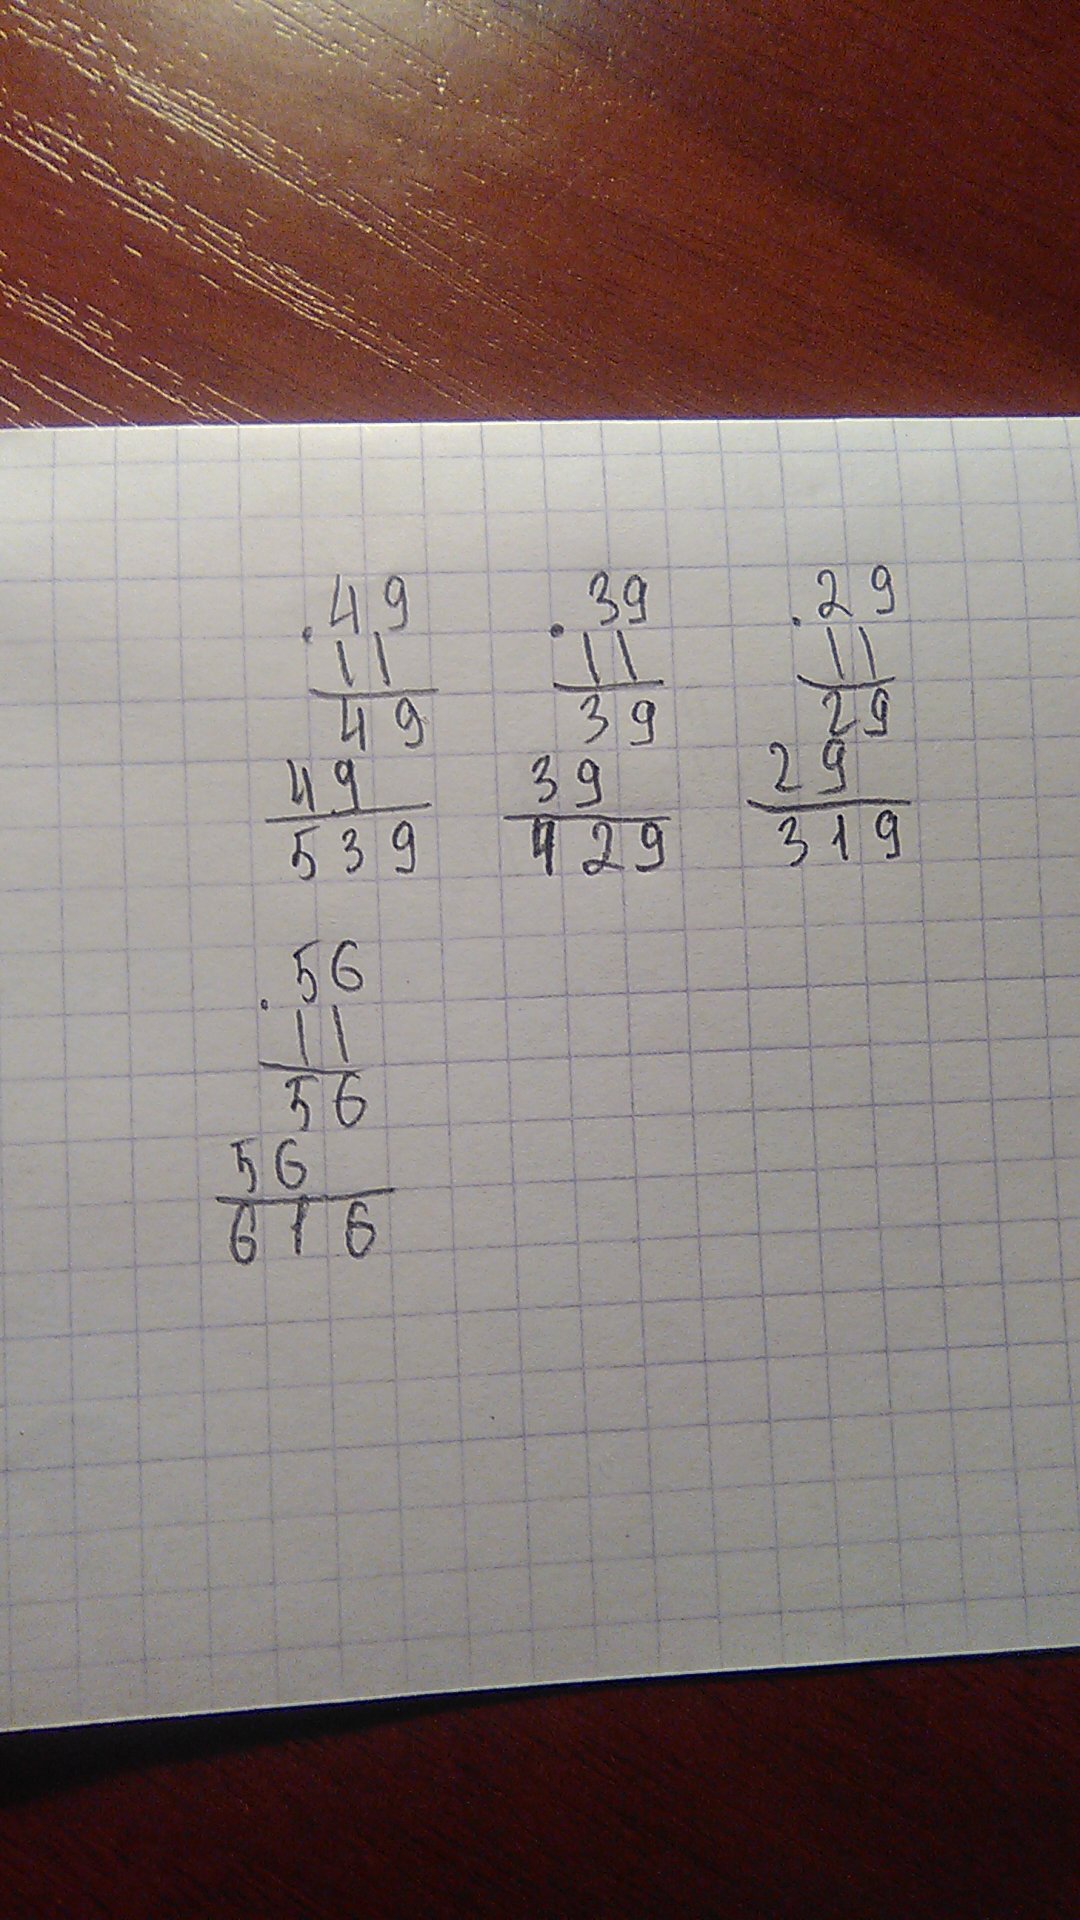 . 49
11
49
49
539
. 39
11
39
39
429
. 29
11
29
29
319
. 56
11
56
56
616